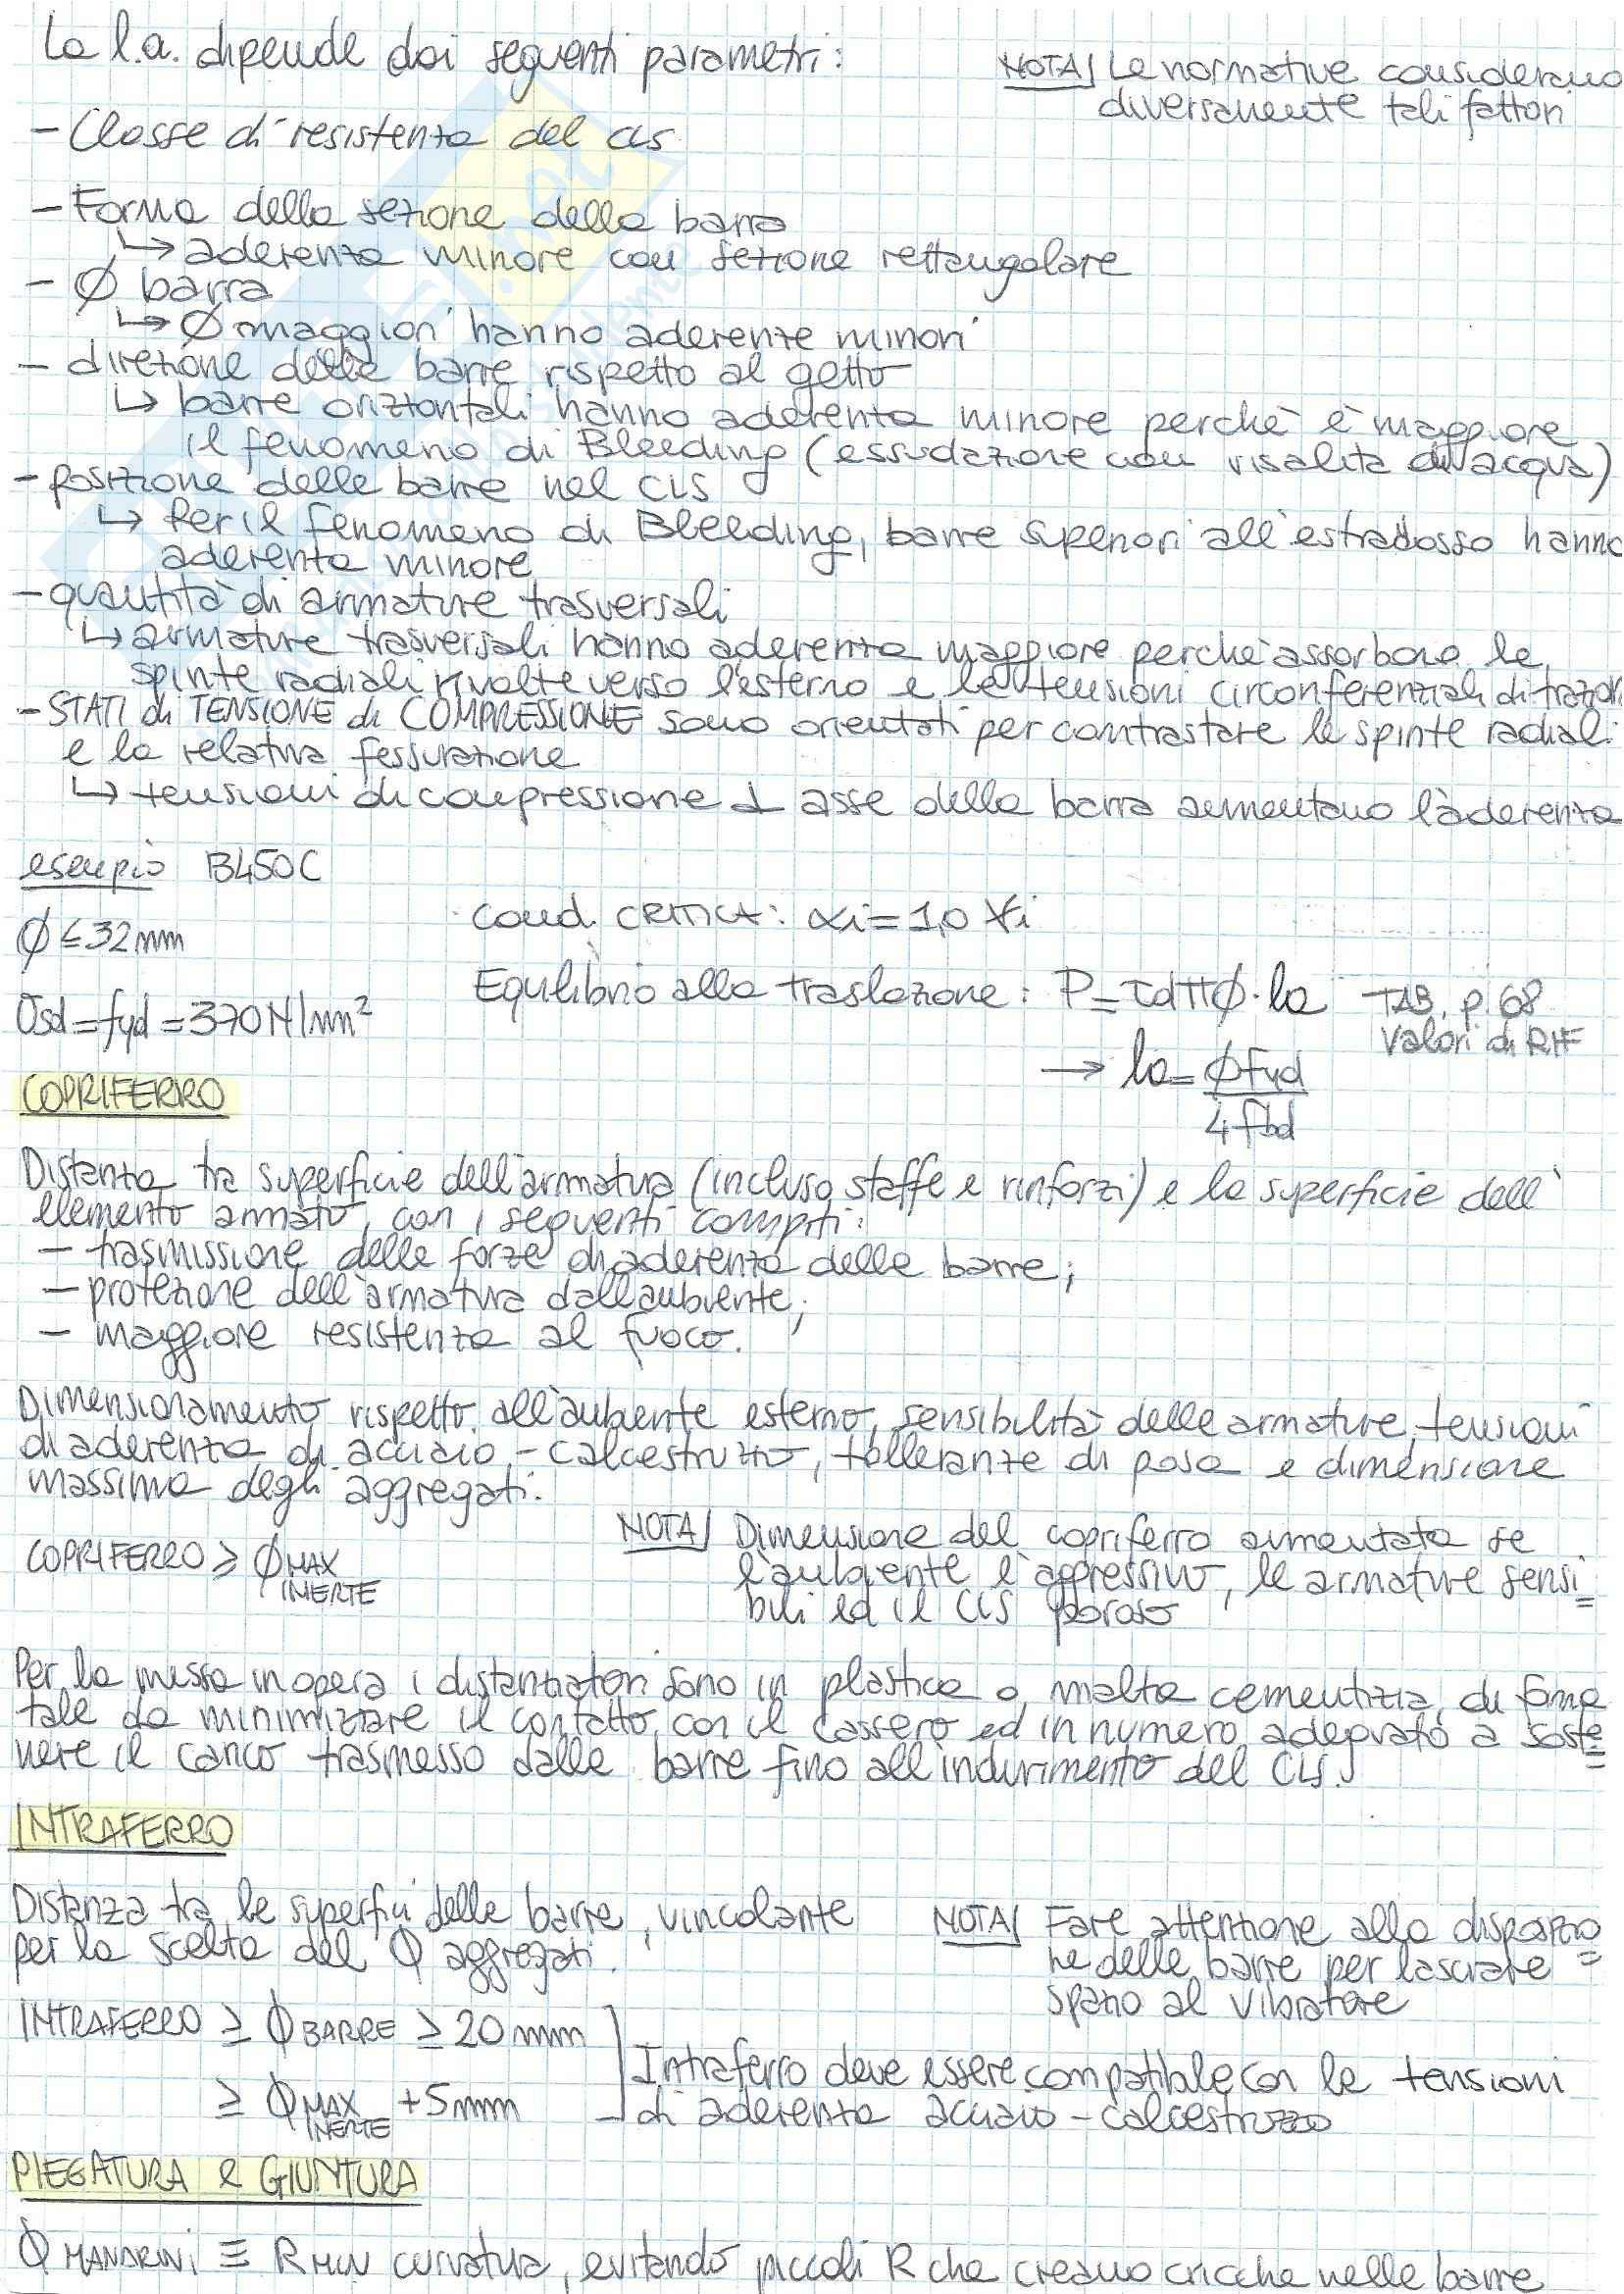 La l.a. dipende dai seguenti parametri:
NOTA| Le normative considerano
diversamente tali fattori
- Classe di resistenza del cls
- Forma della sezione della barra
↳ aderenza minore con sezione rettangolare
- Ø barra
↳ Ø maggiori hanno aderenze minori
- direzione delle barre rispetto al getto
↳ barre orizzontali hanno aderenza minore perchè è maggiore
il fenomeno di Bleeding (essudazione con risalita di acqua)
- posizione delle barre nel cls
↳ Per il fenomeno di Bleeding, barre superiori all'estradosso hanno
aderenza minore
- quantità di armature trasversali
↳ armature trasversali hanno aderenza maggiore perchè assorbono le
spinte radiali rivolte verso l'esterno e le tensioni circonferenziali di trazion
- STATI di TENSIONE di COMPRESSIONE sono orientati per contrastare le spinte radiali
e la relativa fessurazione
↳ tensioni di compressione ⊥ asse della barra aumentano l'aderenza
esempio B450C
Ø ≤ 32 mm
Cond. CRITICA: αi = 1,0 ∀i
σsd = fyd = 370 N/mm²
Equilibrio alla traslazione: P = τd π Ø · la
TAB. p. 68
Valori di RIF
→ la = Ø Fyd / 4 fbd
COPRIFERRO
Distanza tra superficie dell'armatura (incluso staffe e rinforzi) e la superficie dell'
elemento armato, con i seguenti compiti:
- trasmissione delle forze di aderenza delle barre;
- protezione dell'armatura dall'ambiente;
- maggiore resistenza al fuoco.
Dimensionamento rispetto all'ambiente esterno, sensibilità delle armature, tensioni
di aderenza di acciaio - calcestruzzo, tolleranze di posa e dimensione
massima degli aggregati.
COPRIFERRO ≥ Ø MAX INERTE
NOTA| Dimensione del copriferro aumentata se
l'ambiente è aggressivo, le armature sensi=
bili ed il cls poroso
Per la messa in opera i distanziatori sono in plastica o malta cementizia, di forma
tale da minimizzare il contatto con il cassero ed in numero adeguato a soste=
nere il carico trasmesso dalle barre fino all'indurimento del cls.
INTRAFERRO
Distanza tra le superfici delle barre, vincolante
per la scelta del Ø aggregati.
NOTA| Fare attenzione alla disposizio=
ne delle barre per lasciare
spazio al vibratore
INTRAFERRO ≥ Ø BARRE ≥ 20 mm
≥ Ø MAX INERTE + 5 mm
Intraferro deve essere compatibile con le tensioni
di aderenza acciaio - calcestruzzo
PIEGATURA e GIUNTURA
Ø MANDRINI ≡ R MIN curvatura, evitando piccoli R che creano cricche nelle barre